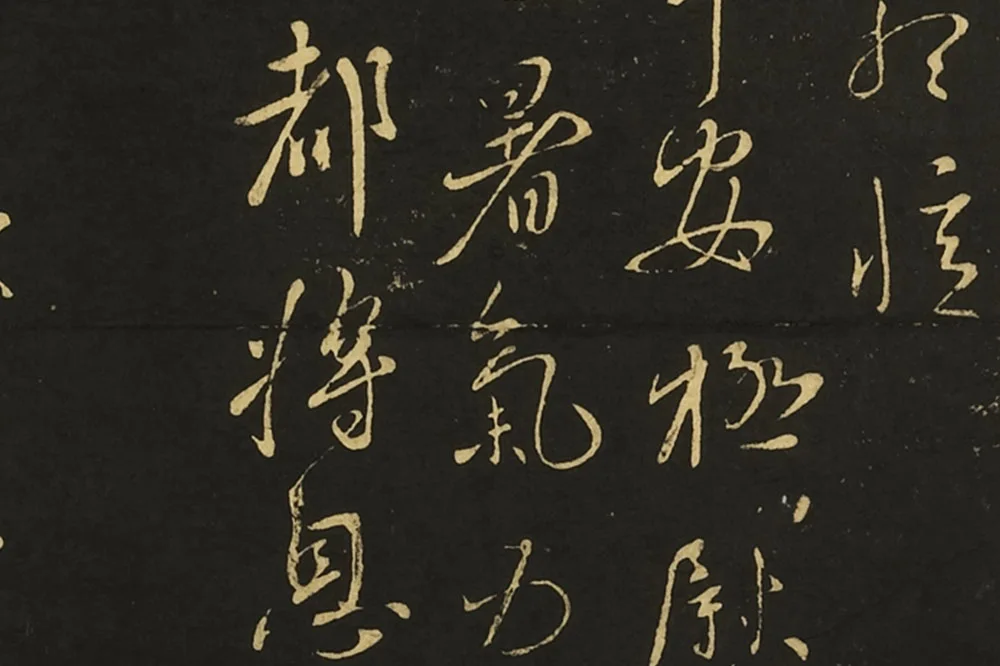 憶
安極慰
暑氣力
都將息